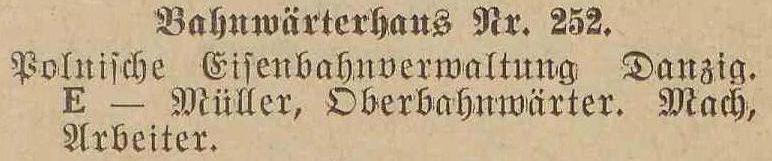 Bahnwärterhaus Nr. 252.
Polnische Eisenbahnverwaltung Danzig.
E — Müller, Oberbahnwärter. Mach,
Arbeiter.